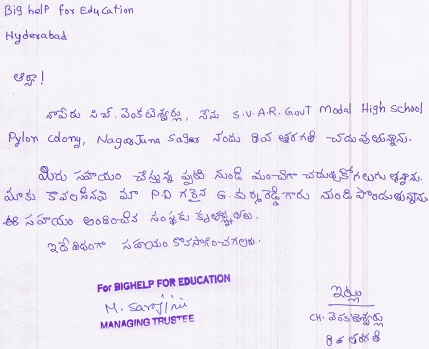 Big help for Education
Hyderabad
ఆర్యా!
నాపేరు సిహెచ్. వెంకటేశ్వర్లు, నేను S.V.A.R. Govt Modal High School
Pylon colony, Nagarjuna Sagar నందు 8వ తరగతి చదువుచున్నాను.
మీరు సహాయం చేస్తున్న ప్పటి నుండి మంచిగా చదువుకోగలుగు తున్నాను.
మాకు కావలసినవి మా P.D గారైన G. కృష్ణారెడ్డి గారు నుండి పొందుతున్నాను.
ఈ సహాయం అందించిన సంస్థకు కృతజ్ఞతలు.
ఇదేవిధంగా సహాయం కొనసాగించగలరు.
For BIGHELP FOR EDUCATION
M. Sarojini
MANAGING TRUSTEE
ఇట్లు
CH. వెంకటేశ్వర్లు
8వ తరగతి